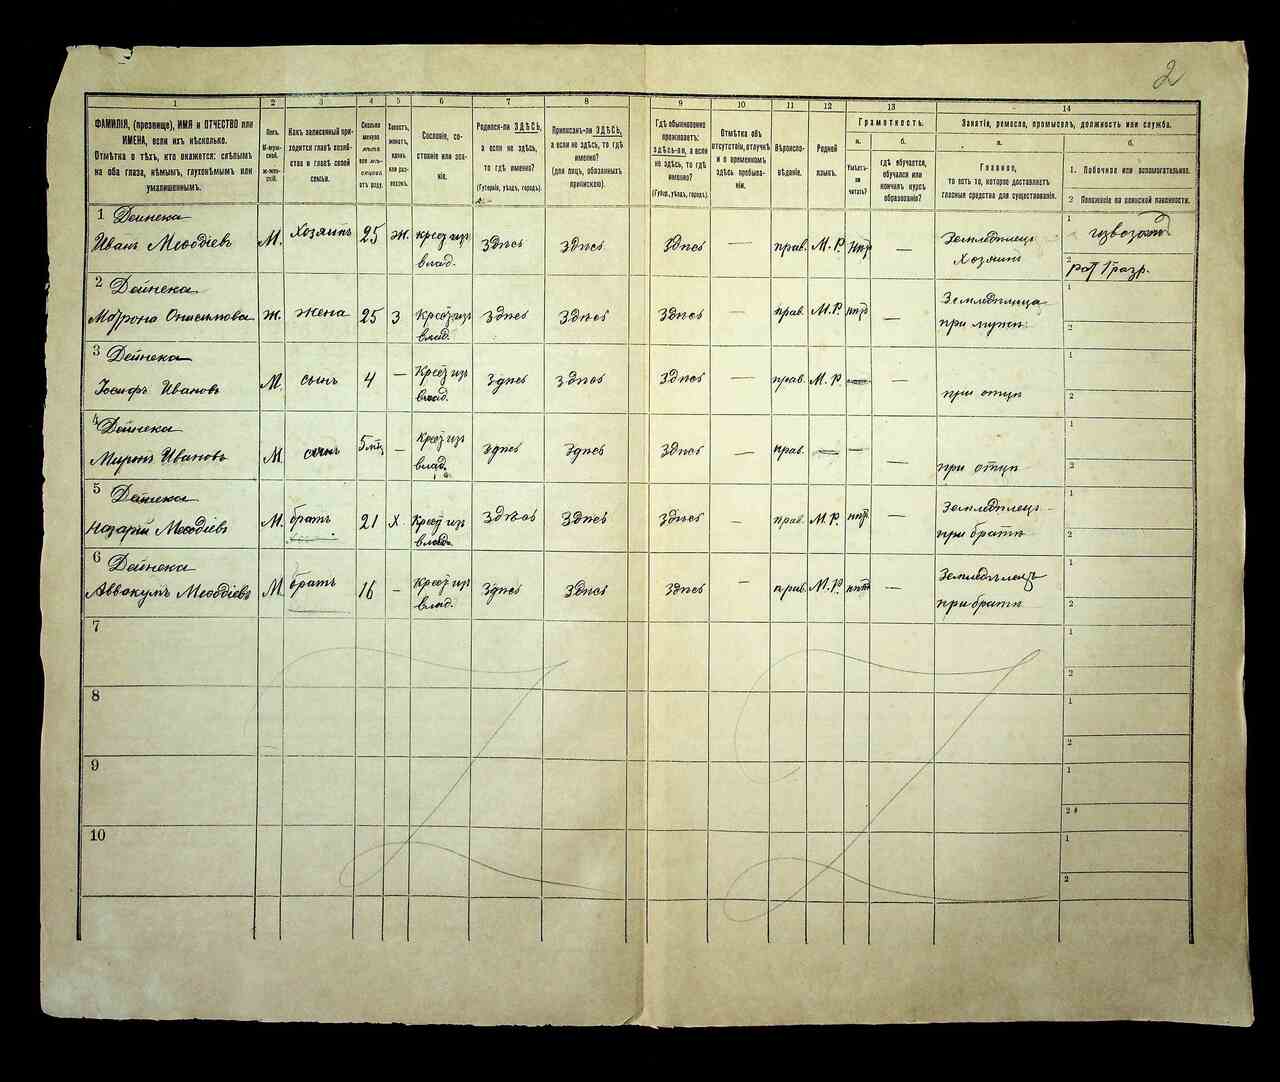 2
1 2 3 4 5 6 7 8 9 10 11 12 13 14
ФАМИЛІЯ, (прозвище), ИМЯ и ОТЧЕСТВО или
ИМЕНА, если ихъ нѣсколько.
Отмѣтка о тѣхъ, кто окажется: слѣпымъ
на оба глаза, нѣмымъ, глухонѣмымъ или
умалишеннымъ.
Полъ.
М-муж-
ской.
Ж-жен-
скій.
Какъ записанный при-
ходится главѣ хозяй-
ства и главѣ своей
семьи.
Сколько
минуло
лѣтъ
или мѣ-
сяцевъ
отъ роду.
Холостъ,
женатъ,
вдовъ
или раз-
веденъ.
Сословіе, со-
стояніе или зва-
ніе.
Родился-ли ЗДѢСЬ,
а если не здѣсь,
то гдѣ именно?
(Губернія, уѣздъ, городъ).
Приписанъ-ли ЗДѢСЬ,
а если не здѣсь, то гдѣ
именно?
(для лицъ, обязанныхъ
припискою).
Гдѣ обыкновенно
проживаетъ:
здѣсь-ли, а если
не здѣсь, то гдѣ
именно?
(Губер., уѣздъ, городъ).
Отмѣтка объ
отсутствіи, отлучкѣ
и о временномъ
здѣсь пребыва-
ніи.
Вѣроиспо-
вѣданіе.
Родной
языкъ.
Грамотность.
а.
Умѣетъ-
ли
читать?
б.
гдѣ обучается,
обучался или
кончилъ курсъ
образованія?
Занятіе, ремесло, промыселъ, должность или служба.
а.
Главное,
то есть то, которое доставляетъ
главныя средства для существованія.
б.
1. Побочное или вспомогательное.
2 Положеніе по воинской повинности.
1 Дейнека
Иванъ Меѳодіевъ М. Хозяинъ 25 ж. крест из
влад. Здѣсь Здѣсь Здѣсь — прав. М. Р. — Земледѣлецъ
Хозяинъ
1
2
2 Дейнека
Онисимова ж. жена 25 З Крест из
влад. Здѣсь Здѣсь Здѣсь — прав. М. Р. —
при
1
2
3 Дейнека
Іосифъ Ивановъ М. сынъ 4 — Крест из
влад. Здѣсь Здѣсь Здѣсь — прав. М. Р. — —
при отцѣ
1
2
4 Дейнека
Миронъ Ивановъ М сынъ 5 — Крест из
влад. Здѣсь Здѣсь Здѣсь — прав. — — —
при отцѣ
1
2
5 Дейнека
Назарій Меѳодіевъ М. братъ 21 Х. Крест из
влад. Здѣсь Здѣсь Здѣсь — прав. М. Р. — Земледѣлецъ
при братѣ
1
2
6 Дейнека
Аввакумъ Меѳодіевъ М братъ 16 — Крест из
влад. Здѣсь Здѣсь Здѣсь — прав. М. Р. — Земледѣлецъ
при братѣ
1
2
7
1
2
8
1
2
9
1
2
10
1
2